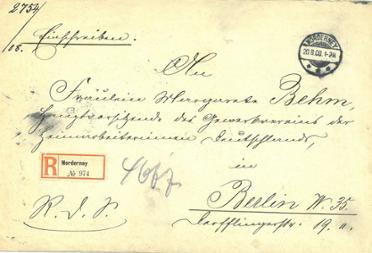 2754/08.
Einschreiben.
NORDERNEY
20.8.08.1-2N.
An
Fräulein Margarete Behm,
Hauptvorsitzende des Gewerkvereins der
Heimarbeiterinnen Deutschlands,
in
Berlin W. 35.
Derfflingerstr. 19 a.
R
Norderney
№ 974
R. D. S.